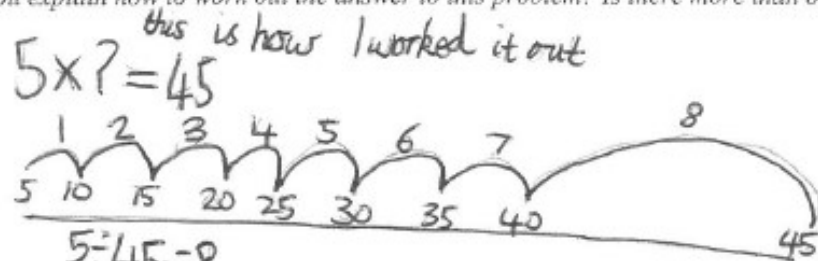 explain how to work out the answer to this problem? Is there more than o
this is how I worked it out
5×?=45
1 2 3 4 5 6 7 8
5 10 15 20 25 30 35 40 45